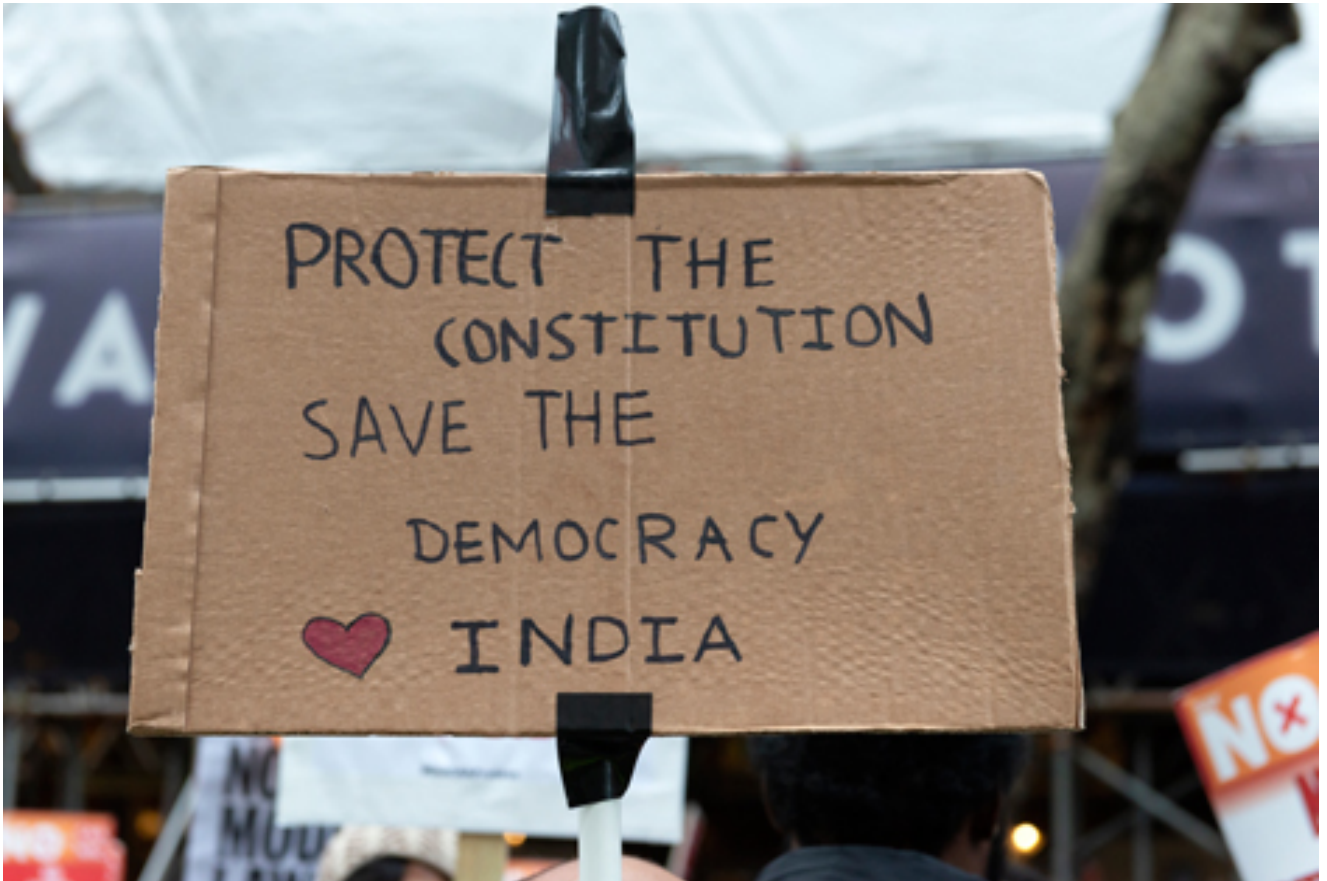 PROTECT THE
CONSTITUTION
SAVE THE
DEMOCRACY
INDIA
NO
NO